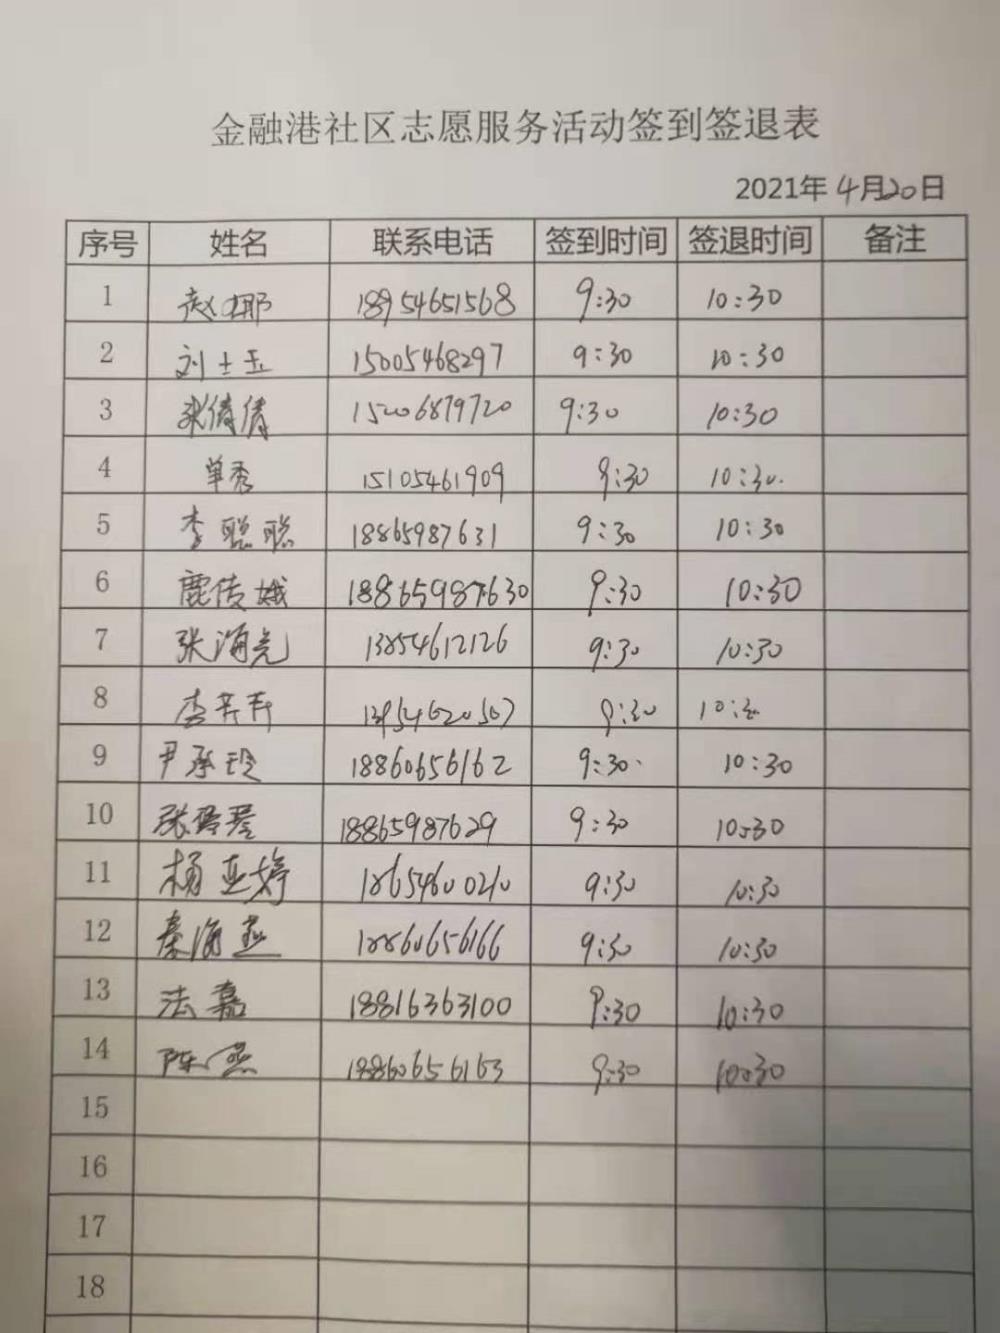 金融港社区志愿服务活动签到签退表
2021年4月20日
序号 姓名 联系电话 签到时间 签退时间 备注
1 赵娜 18954651568 9:30 10:30
2 刘士玉 15005468297 9:30 10:30
3 张倩倩 15206879720 9:30 10:30
4 单秀 15105461909 9:30 10:30.
5 李聪聪 18865987631 9:30 10:30
6 鹿传娥 18865987630 9:30 10:30
7 张海亮 13854612126 9:30 10:30
8 李卉卉 13954620567 9:30 10:30
9 尹承玲 18860656162 9:30 10:30
10 张 18865987629 9:30 10:30
11 杨亚婷 18654600210 9:30 10:30
12 秦海燕 18860656166 9:30 10:30
13 法嘉 18816363100 9:30 10:30
14 陈燕 18860656163 9:30 10:30
15
16
17
18